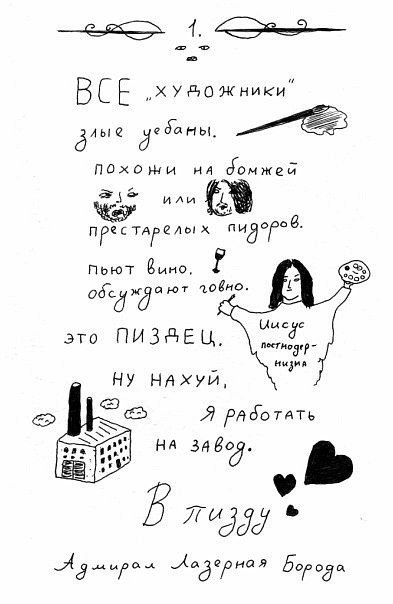 1.
ВСЕ „ХУДОЖНИКИ“
злые уебаны.
похожи на бомжей
или
престарелых пидоров.
пьют вино.
обсуждают говно.
Иисус
постмодер-
низма
это ПИЗДЕЦ.
ну нахуй,
я работать
на завод.
В пизду
Адмирал Лазерная Борода